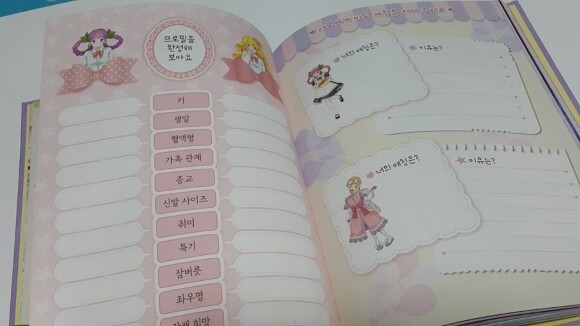 프로필을
완성해
보아요
키
생일
혈액형
가족 관계
종교
신발 사이즈
취미
특기
잠버릇
좌우명
장래 희망
너의 애칭은?
이유는?
너의 애칭은?
이유는?